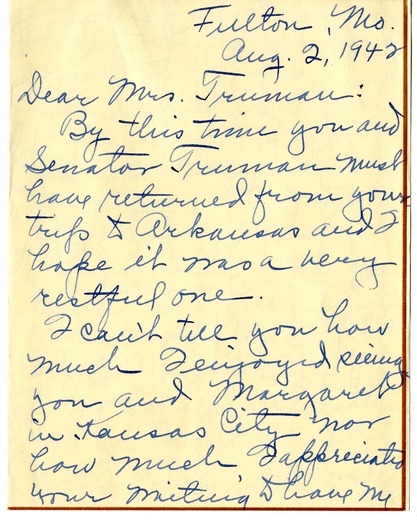 Fulton, Mo.
Aug. 2, 1942
Dear Mrs. Truman:
By this time you and
Senator Truman must
have returned from your
trip to Arkansas and I
hope it was a very
restful one.
I can't tell you how
much I enjoyed seeing
you and Margaret
in Kansas City nor
how much I appreciated
your writing to have me